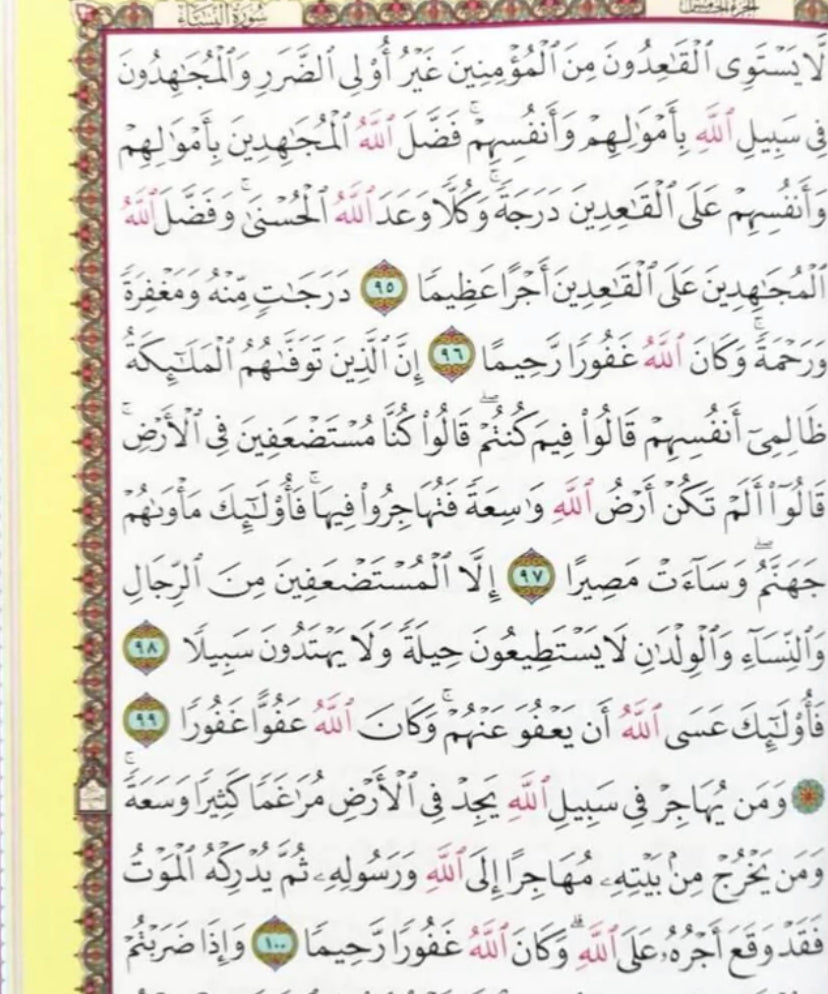 سورة النساء الجزء الخامس
لَّا يَسْتَوِى ٱلْقَـٰعِدُونَ مِنَ ٱلْمُؤْمِنِينَ غَيْرُ أُو۟لِى ٱلضَّرَرِ وَٱلْمُجَـٰهِدُونَ
فِى سَبِيلِ ٱللَّهِ بِأَمْوَٰلِهِمْ وَأَنفُسِهِمْ ۚ فَضَّلَ ٱللَّهُ ٱلْمُجَـٰهِدِينَ بِأَمْوَٰلِهِمْ
وَأَنفُسِهِمْ عَلَى ٱلْقَـٰعِدِينَ دَرَجَةً ۚ وَكُلًّا وَعَدَ ٱللَّهُ ٱلْحُسْنَىٰ ۚ وَفَضَّلَ ٱللَّهُ
ٱلْمُجَـٰهِدِينَ عَلَى ٱلْقَـٰعِدِينَ أَجْرًا عَظِيمًا ٩٥ دَرَجَـٰتٍ مِّنْهُ وَمَغْفِرَةً
وَرَحْمَةً ۚ وَكَانَ ٱللَّهُ غَفُورًا رَّحِيمًا ٩٦ إِنَّ ٱلَّذِينَ تَوَفَّىٰهُمُ ٱلْمَلَـٰٓئِكَةُ
ظَالِمِىٓ أَنفُسِهِمْ قَالُوا۟ فِيمَ كُنتُمْ ۖ قَالُوا۟ كُنَّا مُسْتَضْعَفِينَ فِى ٱلْأَرْضِ ۚ
قَالُوٓا۟ أَلَمْ تَكُنْ أَرْضُ ٱللَّهِ وَٰسِعَةً فَتُهَاجِرُوا۟ فِيهَا ۚ فَأُو۟لَـٰٓئِكَ مَأْوَىٰهُمْ
جَهَنَّمُ ۖ وَسَآءَتْ مَصِيرًا ٩٧ إِلَّا ٱلْمُسْتَضْعَفِينَ مِنَ ٱلرِّجَالِ
وَٱلنِّسَآءِ وَٱلْوِلْدَٰنِ لَا يَسْتَطِيعُونَ حِيلَةً وَلَا يَهْتَدُونَ سَبِيلًا ٩٨
فَأُو۟لَـٰٓئِكَ عَسَى ٱللَّهُ أَن يَعْفُوَ عَنْهُمْ ۚ وَكَانَ ٱللَّهُ عَفُوًّا غَفُورًا ٩٩
۞ وَمَن يُهَاجِرْ فِى سَبِيلِ ٱللَّهِ يَجِدْ فِى ٱلْأَرْضِ مُرَٰغَمًا كَثِيرًا وَسَعَةً ۚ
وَمَن يَخْرُجْ مِنۢ بَيْتِهِۦ مُهَاجِرًا إِلَى ٱللَّهِ وَرَسُولِهِۦ ثُمَّ يُدْرِكْهُ ٱلْمَوْتُ
فَقَدْ وَقَعَ أَجْرُهُۥ عَلَى ٱللَّهِ ۗ وَكَانَ ٱللَّهُ غَفُورًا رَّحِيمًا ١٠٠ وَإِذَا ضَرَبْتُمْ